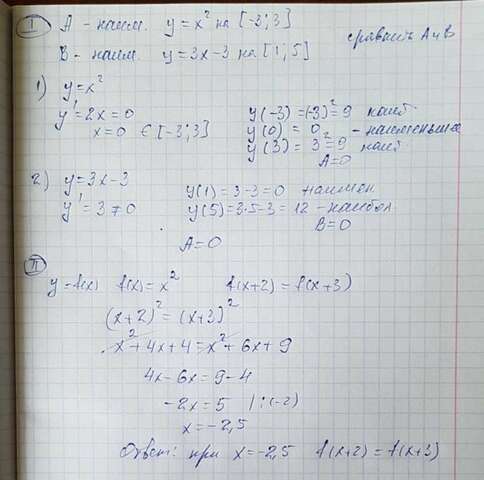 I A - наим. y = x² на [-3; 3]
B - наим. y = 3x - 3 на [1; 5]
сравнить A и B
1) y = x²
y' = 2x = 0
x = 0 ∈ [-3; 3]
y(-3) = (-3)² = 9 наиб
y(0) = 0 - наименьшее
y(3) = 3² = 9 наиб
A = 0
2) y = 3x - 3
y' = 3 ≠ 0
y(1) = 3 - 3 = 0 наимен
y(5) = 3·5 - 3 = 12 - наибол
B = 0
A = 0
II
y = f(x) f(x) = x² f(x+2) = f(x+3)
(x+2)² = (x+3)²
x² + 4x + 4 = x² + 6x + 9
4x - 6x = 9 - 4
-2x = 5 | :(-2)
x = -2,5
Ответ: при x = -2,5 f(x+2) = f(x+3)